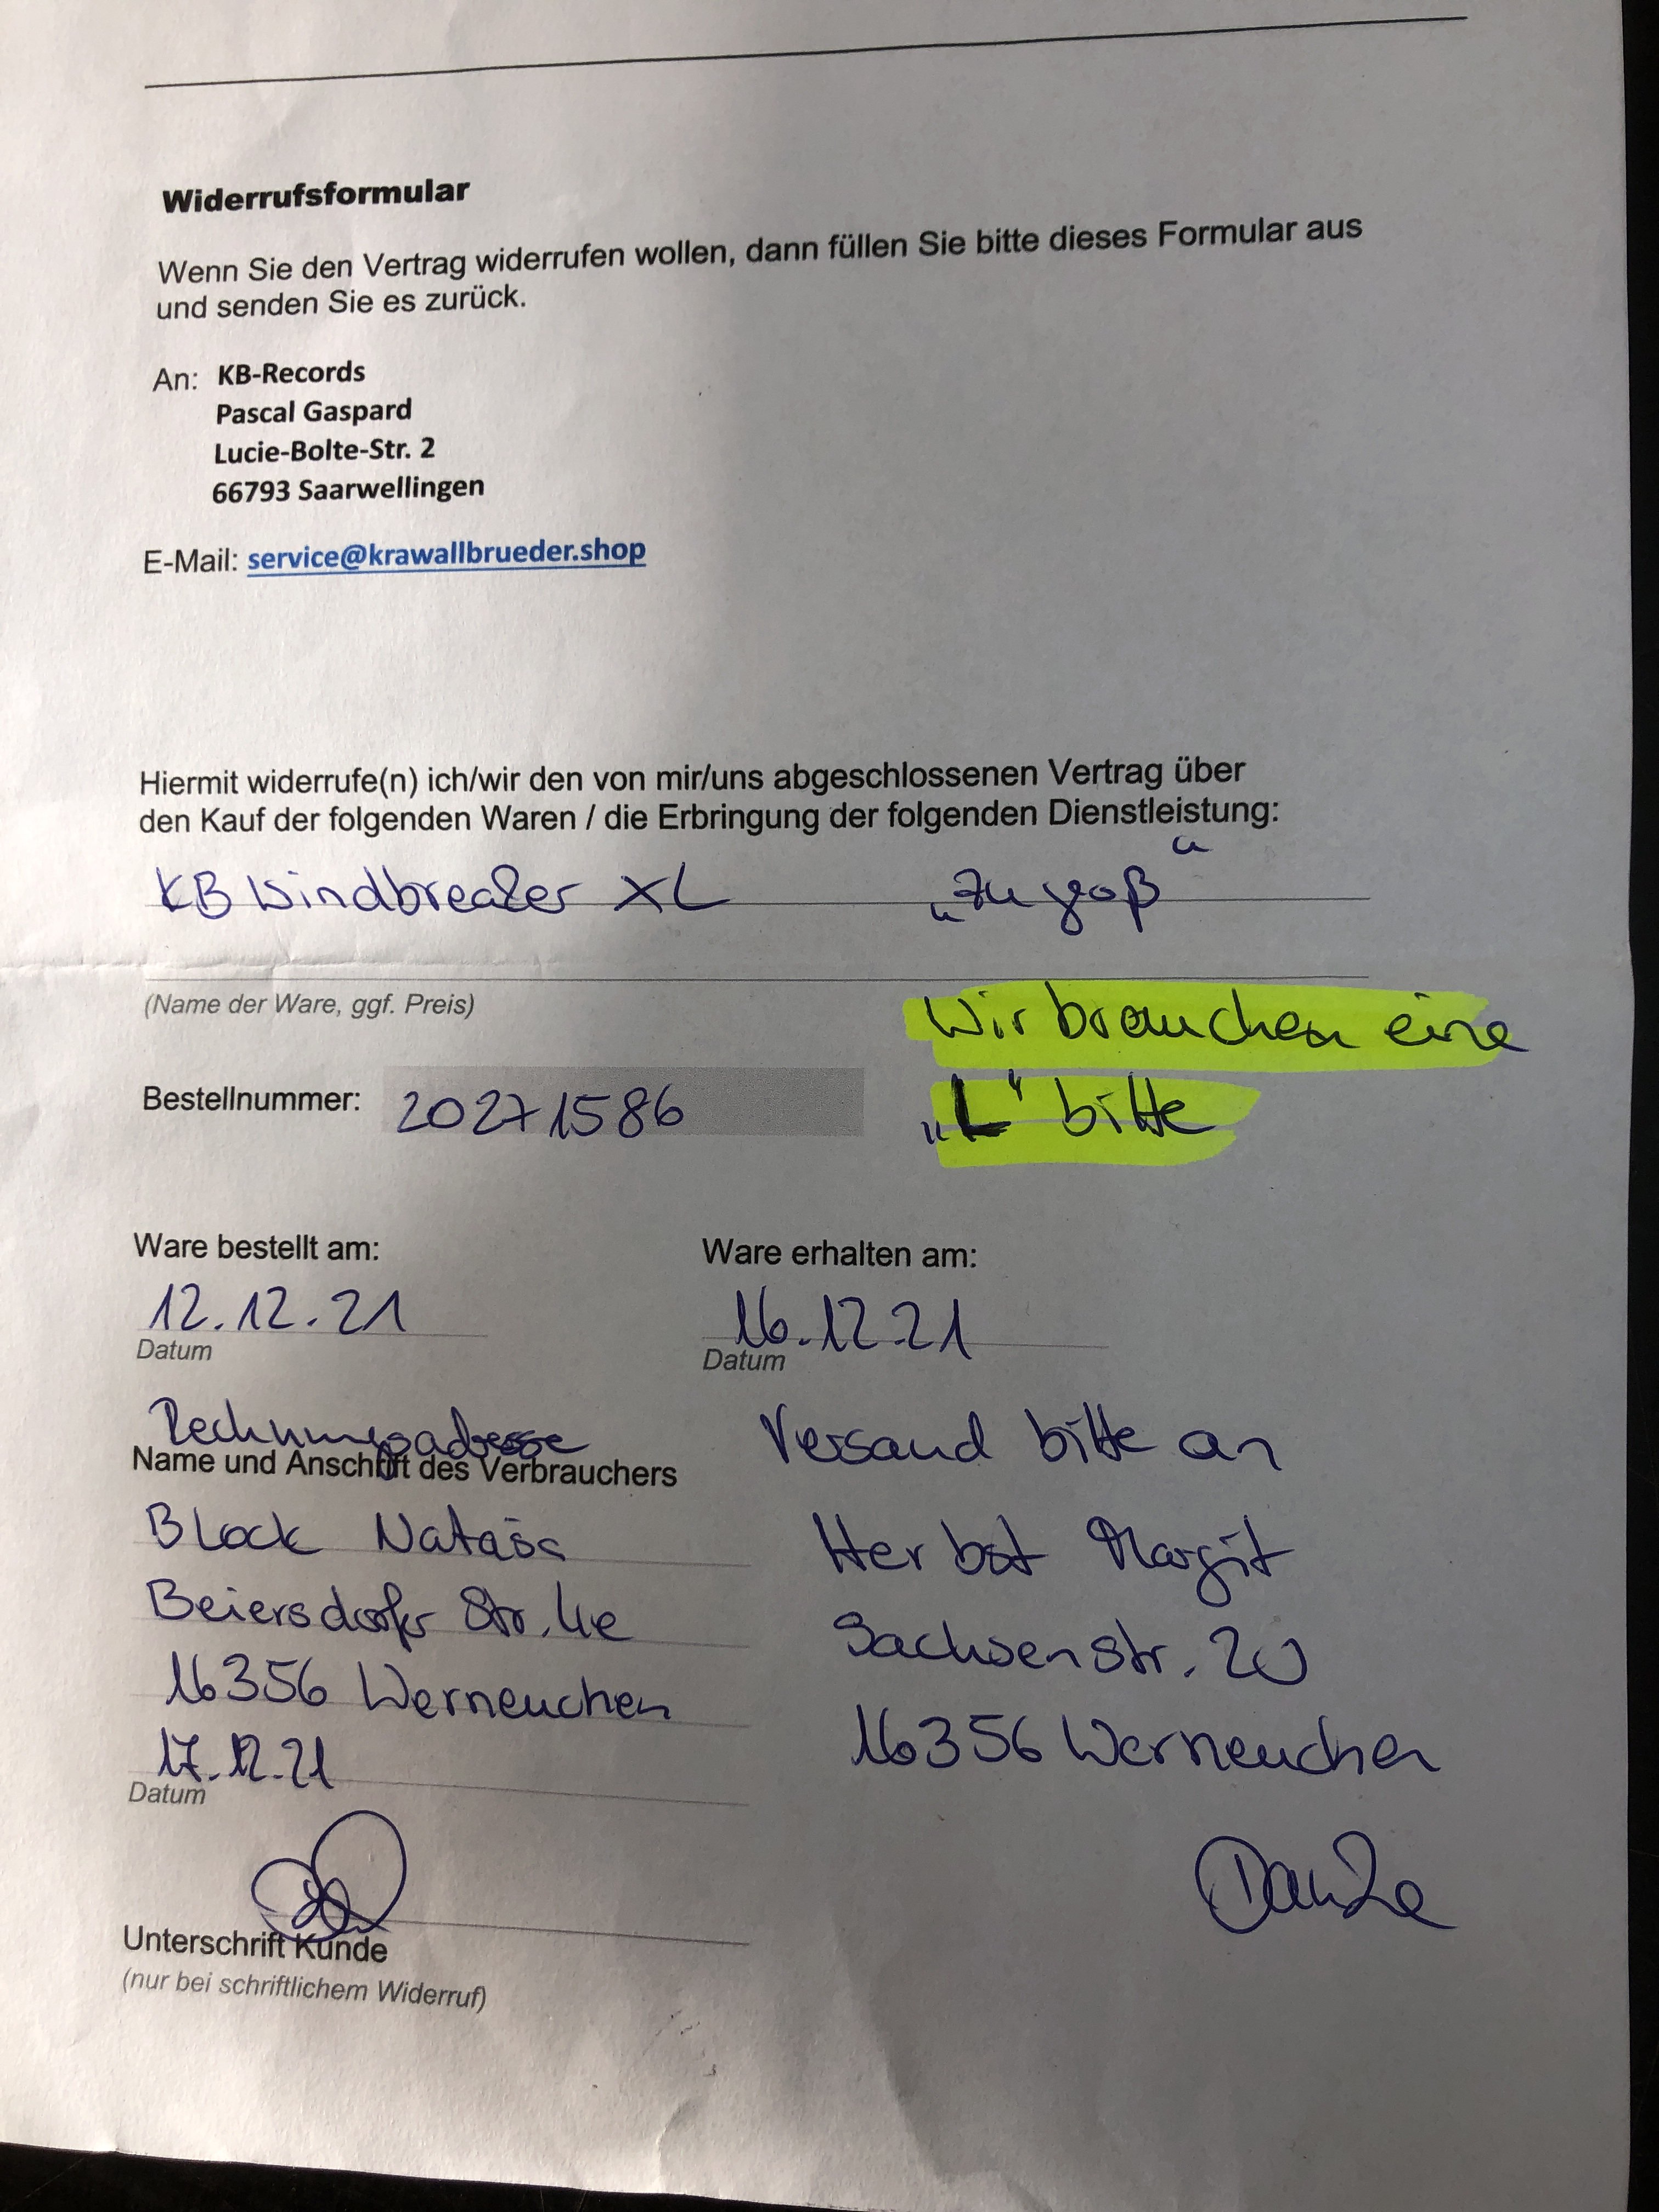 Widerrufsformular
Wenn Sie den Vertrag widerrufen wollen, dann füllen Sie bitte dieses Formular aus
und senden Sie es zurück.
An: KB-Records
Pascal Gaspard
Lucie-Bolte-Str. 2
66793 Saarwellingen
E-Mail: service@krawallbrueder.shop
Hiermit widerrufe(n) ich/wir den von mir/uns abgeschlossenen Vertrag über
den Kauf der folgenden Waren / die Erbringung der folgenden Dienstleistung:
KB Windbreaker XL „zu groß“
(Name der Ware, ggf. Preis)
Wir brauchen eine
Bestellnummer: 20271586
„L“ bitte
Ware bestellt am: Ware erhalten am:
12.12.21 16.12.21
Datum Datum
Rechnungsadresse Versand bitte an
Name und Anschrift des Verbrauchers
Block Herbst Margit
Beiersdorfer Str. 4e Sachsenstr. 20
16356 Werneuchen 16356 Werneuchen
17.12.21
Datum
Danke
Unterschrift Kunde
(nur bei schriftlichem Widerruf)